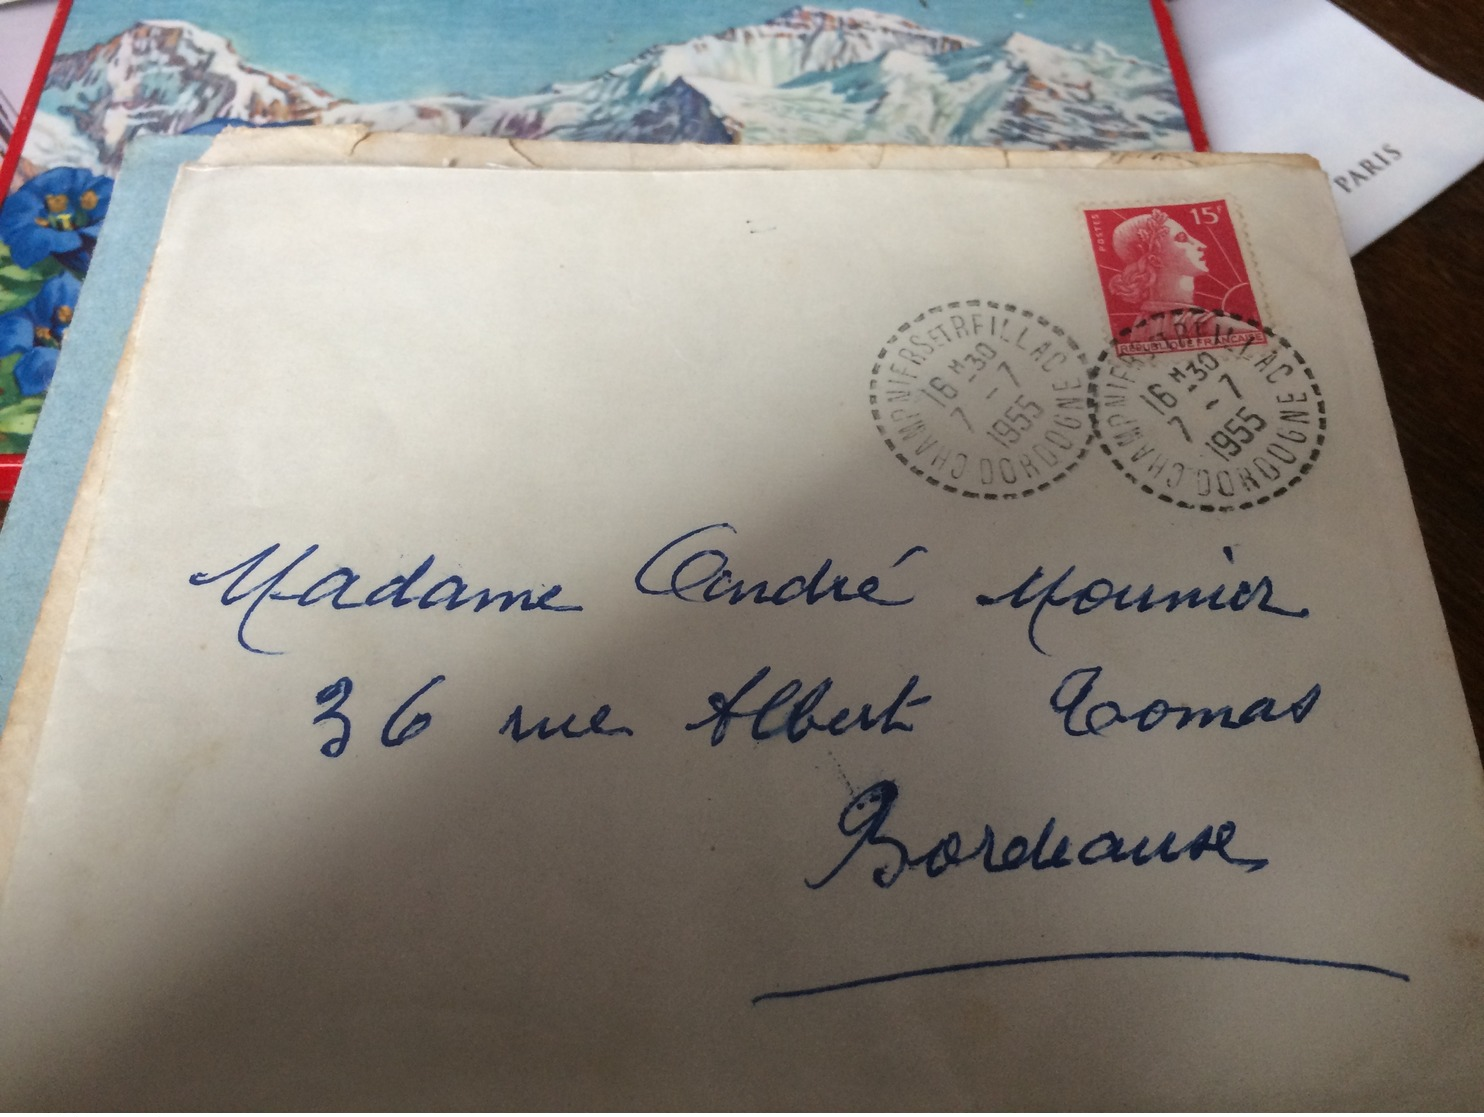 PARIS
POSTES
15F
RÉPUBLIQUE FRANÇAISE
CHAMPNIERS ET REILLAC
16 H 30
7 - 7
1955
DORDOGNE
CHAMPNIERS ET REILLAC
16 H 30
7 - 7
1955
DORDOGNE
Madame André Mounier
36 rue Albert Tomas
Bordeaux